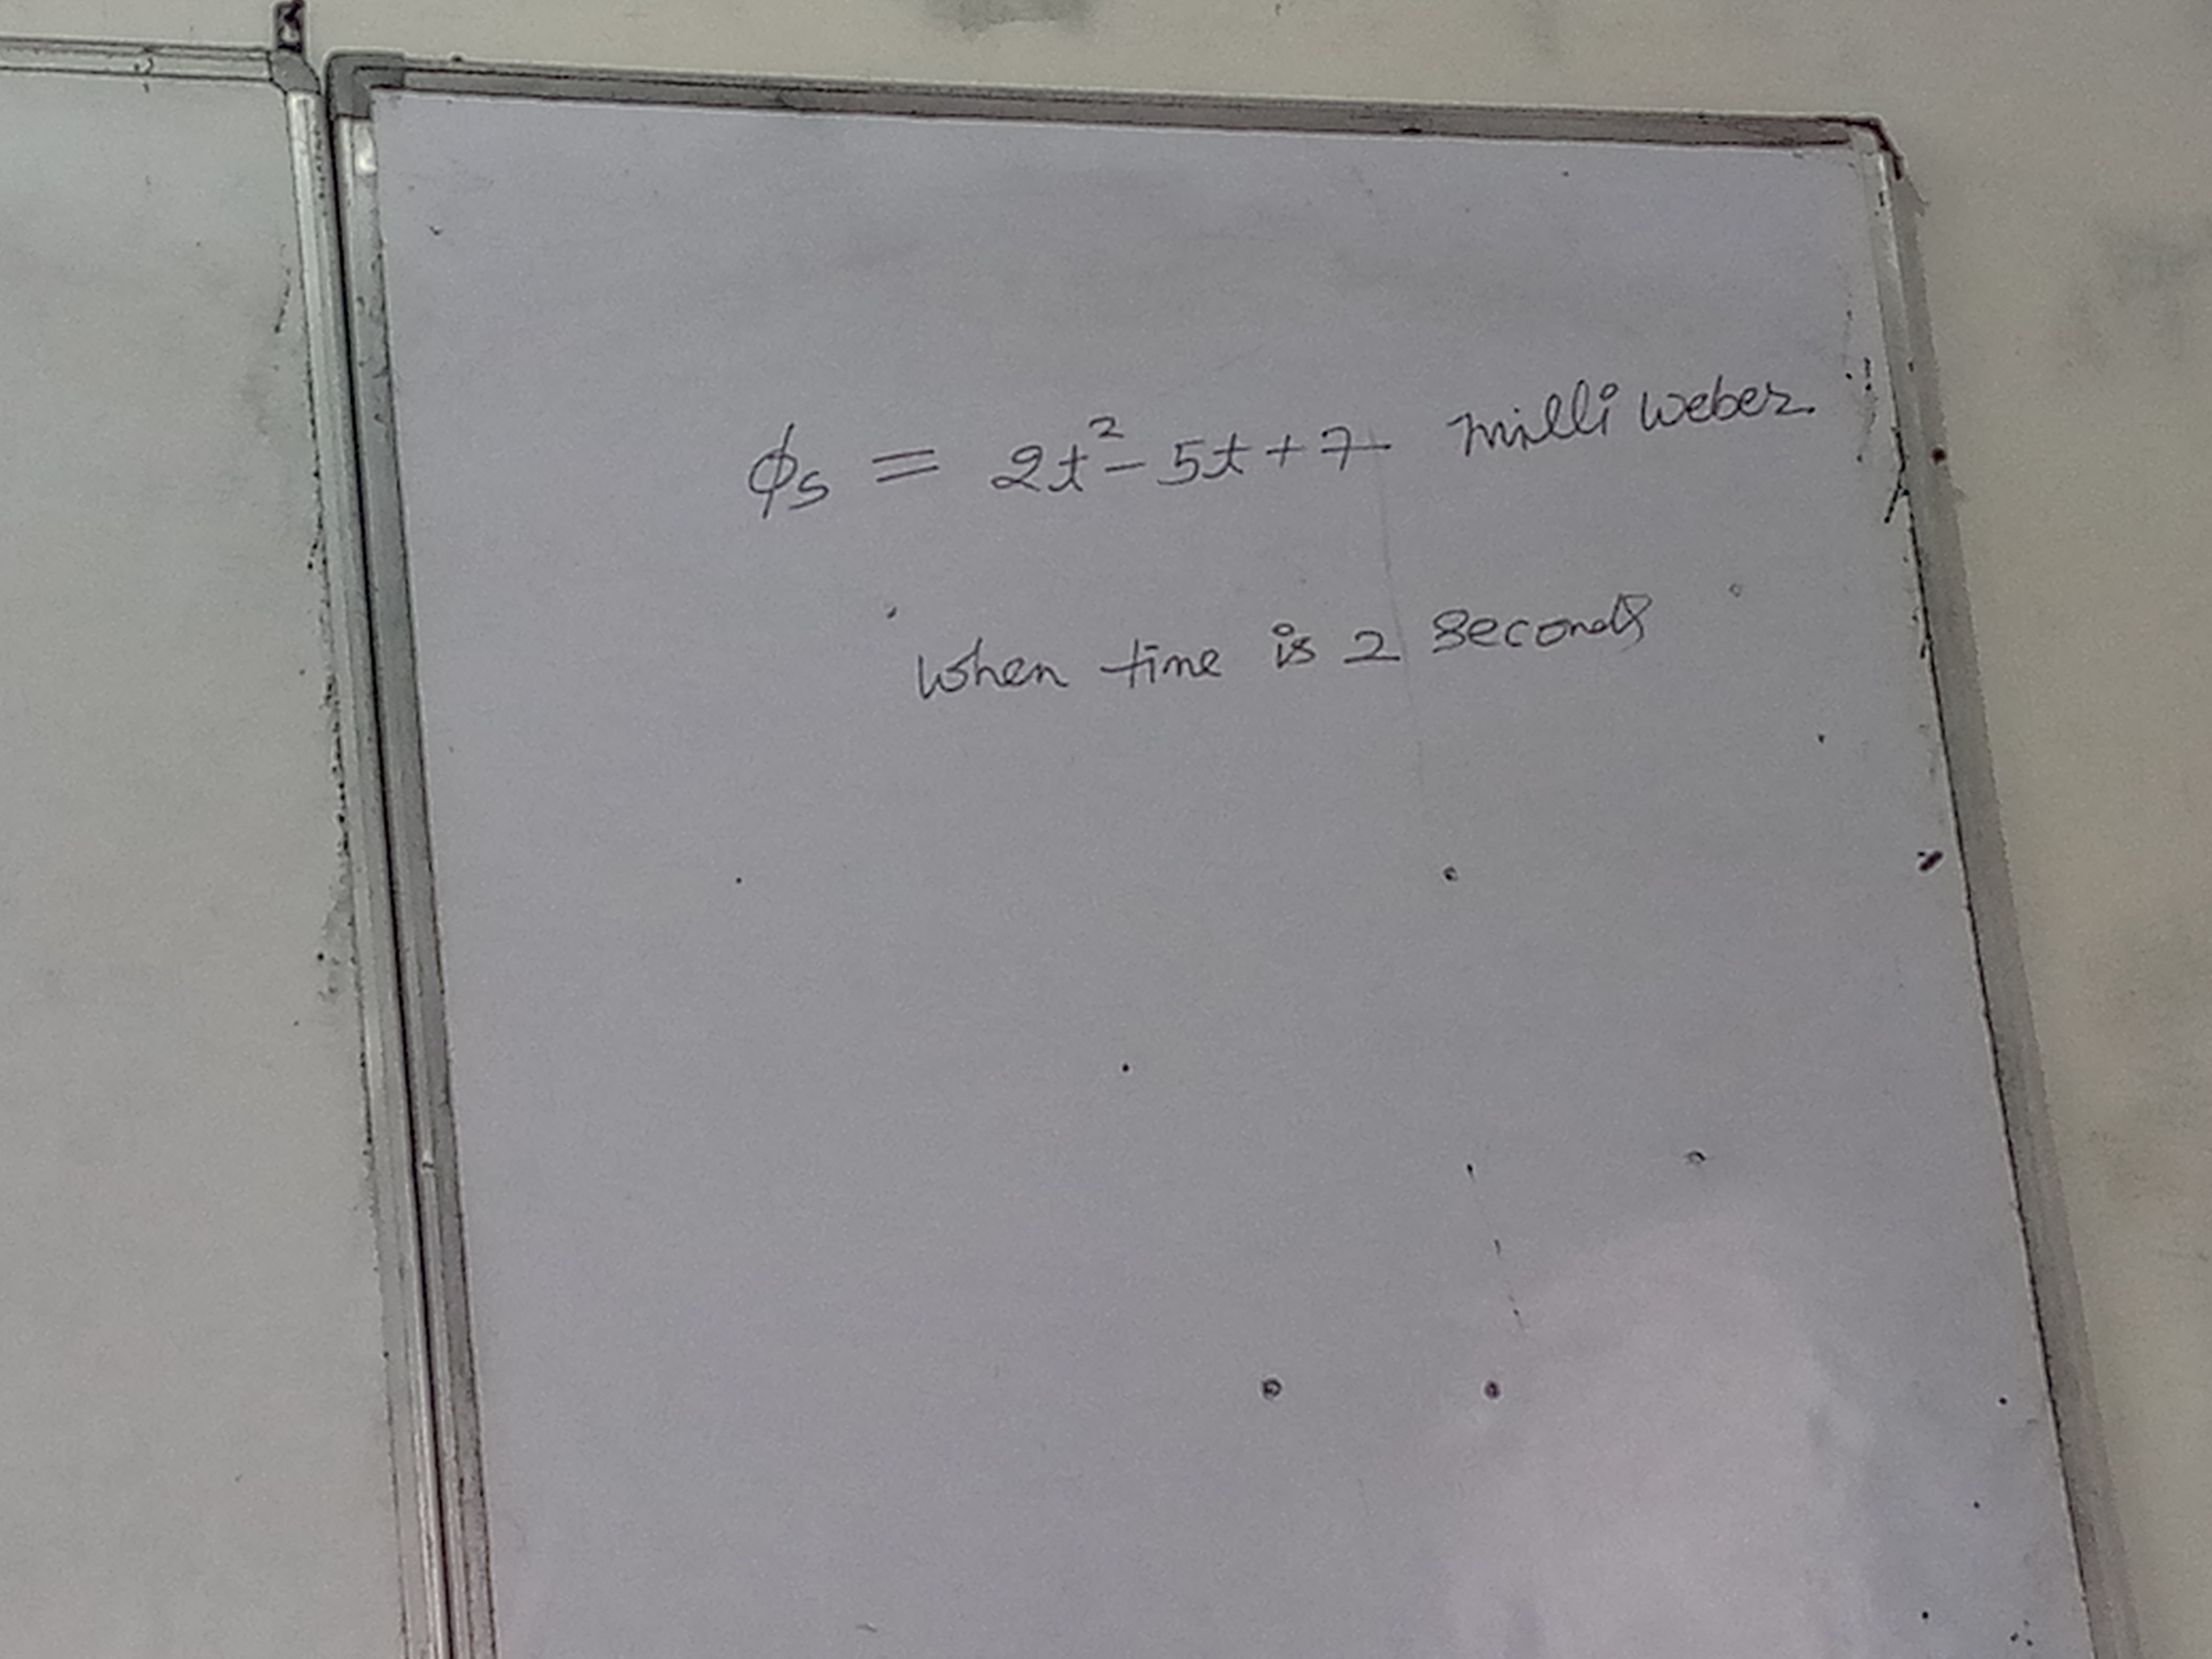 ϕₛ = 2t² - 5t + 7 milli weber.
when time is 2 seconds